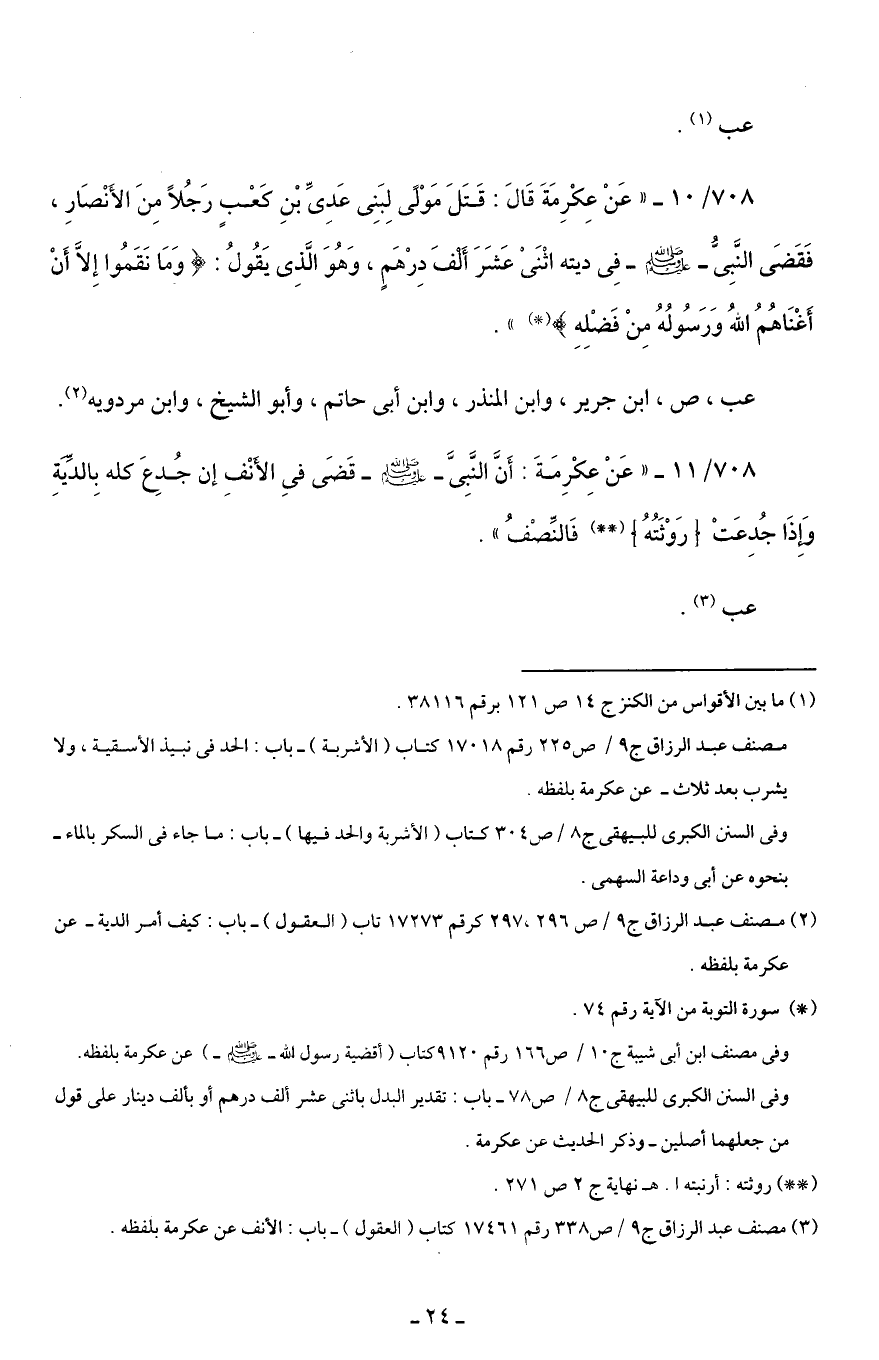 عب (١) .
٧٠٨/ ١٠ ـ « عَنْ عِكْرِمَةَ قَالَ : قَتَلَ مَوْلًى لِبَنِى عَدِىِّ بْنِ كَعْبٍ رَجُلاً مِنَ الأَنْصَارِ ،
فَقَضَى النَّبِىُّ ـ ﷺ ـ فِى ديته اثْنَىْ عَشَرَ أَلْفَ دِرْهَمٍ ، وَهُوَ الَّذِى يَقُولُ : ﴿ وَمَا نَقَمُوا إِلاَّ أَنْ
أَغْنَاهُمُ اللهُ وَرَسُولُهُ مِنْ فَضْلِهِ ﴾(*) » .
عب ، ص ، ابن جرير ، وابن المنذر ، وابن أبى حاتم ، وأبو الشيخ ، وابن مردويه(٢).
٧٠٨/ ١١ ـ « عَنْ عِكْرِمَةَ : أَنَّ النَّبِىَّ ـ ﷺ ـ قَضَى فِى الأَنْفِ إن جُدِعَ كله بِالدِّيَةِ
وَإِذَا جُدِعَتْ {رَوْثَتُهُ}(**) فَالنِّصْفُ » .
عب (٣) .
(١) ما بين الأقواس من الكنز ج ١٤ ص ١٢١ برقم ٣٨١١٦ .
مصنف عبد الرزاق ج٩ / ص٢٢٥ رقم ١٧٠١٨ كتاب ( الأشربة ) ـ باب : الحد فى نبيذ الأسقية ، ولا
يشرب بعد ثلاث ـ عن عكرمة بلفظه .
وفى السنن الكبرى للبيهقى ج٨ / ص٣٠٤ كتاب ( الأشربة والحد فيها ) ـ باب : ما جاء فى السكر بالماء ـ
بنحوه عن أبى وداعة السهمى .
(٢) مصنف عبد الرزاق ج٩ / ص ٢٩٦ ،٢٩٧ كرقم ١٧٢٧٣ تاب ( العقول ) ـ باب : كيف أمر الدية ـ عن
عكرمة بلفظه .
(*) سورة التوبة من الآية رقم ٧٤ .
وفى مصنف ابن أبى شيبة ج١٠ / ص١٦٦ رقم ٩١٢٠كتاب ( أقضية رسول الله ـ ﷺ ـ ) عن عكرمة بلفظه.
وفى السنن الكبرى للبيهقى ج٨ / ص٧٨ ـ باب : تقدير البدل باثنى عشر ألف درهم أو بألف دينار على قول
من جعلهما أصلين ـ وذكر الحديث عن عكرمة .
(**) روثته : أرنبته ا . هـ نهاية ج ٢ ص ٢٧١ .
(٣) مصنف عبد الرزاق ج٩ / ص٣٣٨ رقم ١٧٤٦١ كتاب ( العقول ) ـ باب : الأنف عن عكرمة بلفظه .
ـ ٢٤ ـ